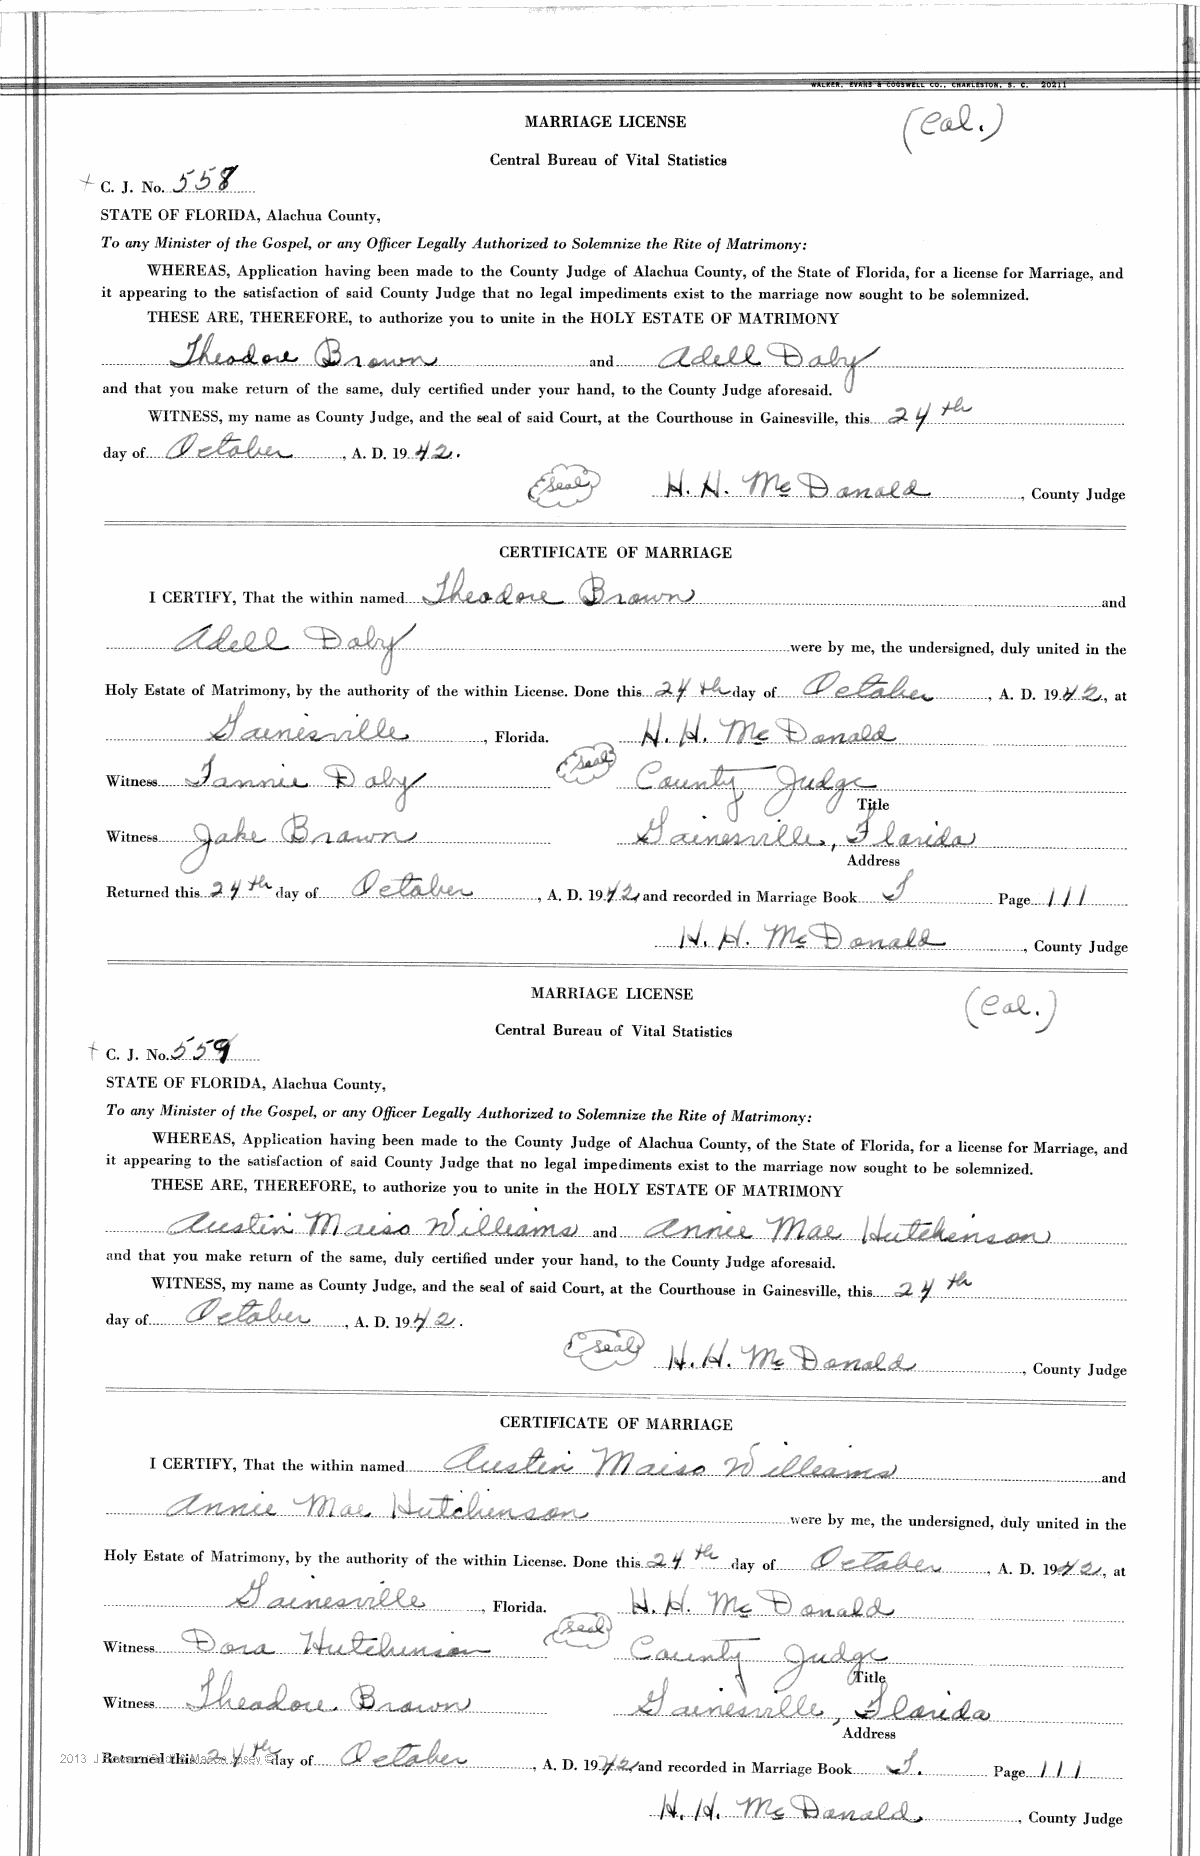 WALKER, EVANS & COGSWELL CO., CHARLESTON, S. C. 20211
MARRIAGE LICENSE (Col.)
Central Bureau of Vital Statistics
C. J. No. 558
STATE OF FLORIDA, Alachua County,
To any Minister of the Gospel, or any Officer Legally Authorized to Solemnize the Rite of Matrimony:
WHEREAS, Application having been made to the County Judge of Alachua County, of the State of Florida, for a license for Marriage, and
it appearing to the satisfaction of said County Judge that no legal impediments exist to the marriage now sought to be solemnized.
THESE ARE, THEREFORE, to authorize you to unite in the HOLY ESTATE OF MATRIMONY
Theodore Brown and Adell Doby
and that you make return of the same, duly certified under your hand, to the County Judge aforesaid.
WITNESS, my name as County Judge, and the seal of said Court, at the Courthouse in Gainesville, this 24th
day of October, A. D. 1942.
Seal H. H. McDonald, County Judge
CERTIFICATE OF MARRIAGE
I CERTIFY, That the within named Theodore Brown and
Adell Doby were by me, the undersigned, duly united in the
Holy Estate of Matrimony, by the authority of the within License. Done this 24th day of October, A. D. 1942, at
Gainesville, Florida. H. H. McDonald
Witness Fannie Doby Seal County Judge
Title
Witness Jake Brown Gainesville, Florida
Address
Returned this 24th day of October, A. D. 1942 and recorded in Marriage Book Page 111
H. H. McDonald, County Judge
MARRIAGE LICENSE (Col.)
Central Bureau of Vital Statistics
C. J. No. 559
STATE OF FLORIDA, Alachua County,
To any Minister of the Gospel, or any Officer Legally Authorized to Solemnize the Rite of Matrimony:
WHEREAS, Application having been made to the County Judge of Alachua County, of the State of Florida, for a license for Marriage, and
it appearing to the satisfaction of said County Judge that no legal impediments exist to the marriage now sought to be solemnized.
THESE ARE, THEREFORE, to authorize you to unite in the HOLY ESTATE OF MATRIMONY
Austin Maiso Williams and Annie Mae Hutchinson
and that you make return of the same, duly certified under your hand, to the County Judge aforesaid.
WITNESS, my name as County Judge, and the seal of said Court, at the Courthouse in Gainesville, this 24th
day of October, A. D. 1942.
Seal H. H. McDonald, County Judge
CERTIFICATE OF MARRIAGE
I CERTIFY, That the within named Austin Maiso Williams and
Annie Mae Hutchinson were by me, the undersigned, duly united in the
Holy Estate of Matrimony, by the authority of the within License. Done this 24th day of October, A. D. 1942, at
Gainesville, Florida. H. H. McDonald
Witness Dora Hutchinson Seal County Judge
Title
Witness Theodore Brown Gainesville, Florida
Address
Returned this 24th day of October, A. D. 1942 and recorded in Marriage Book Page 111
2013
H. H. McDonald, County Judge